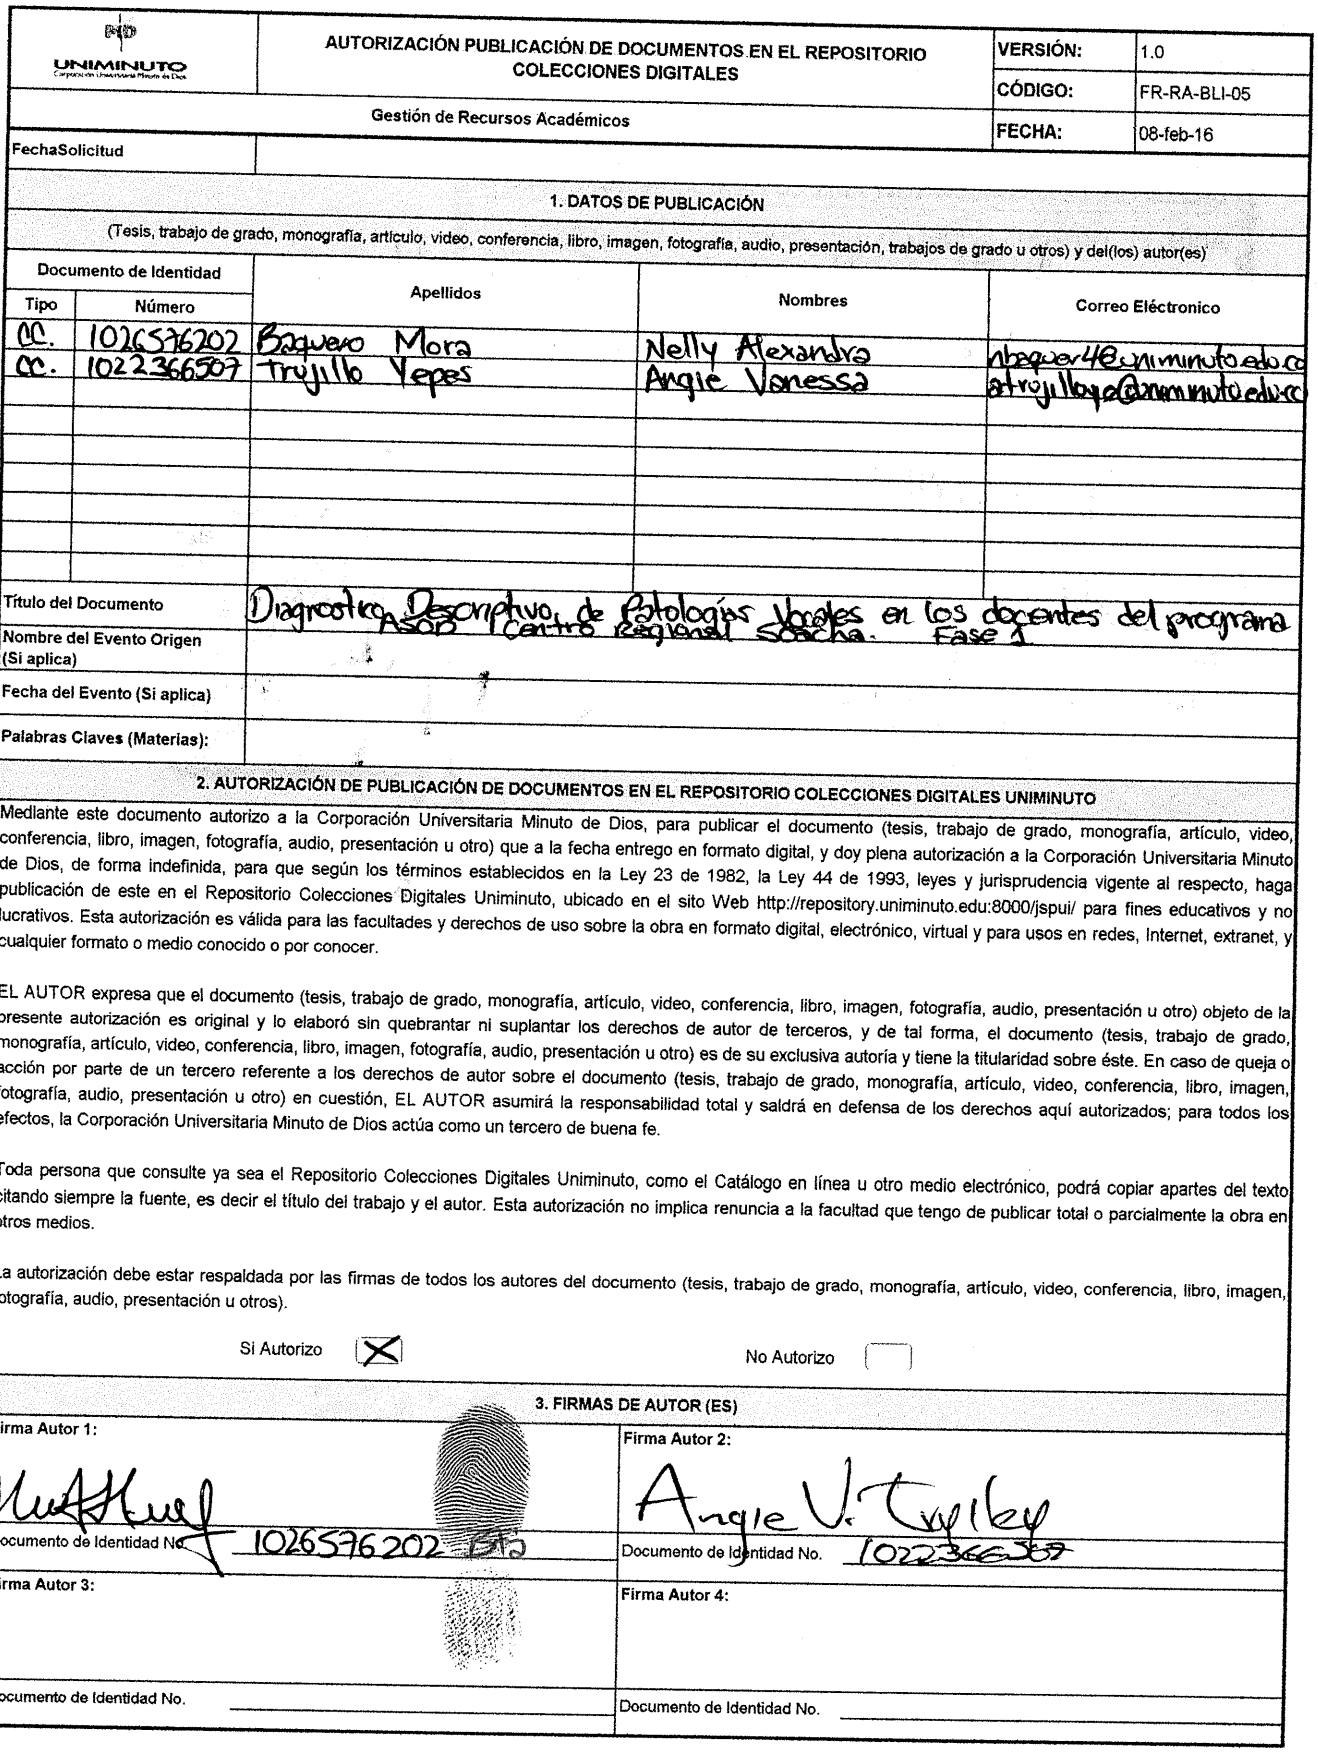 UNIMINUTO
Corporación Universitaria Minuto de Dios
AUTORIZACIÓN PUBLICACIÓN DE DOCUMENTOS EN EL REPOSITORIO
COLECCIONES DIGITALES
VERSIÓN: 1.0
CÓDIGO: FR-RA-BLI-05
Gestión de Recursos Académicos
FECHA: 08-feb-16
FechaSolicitud
1. DATOS DE PUBLICACIÓN
(Tesis, trabajo de grado, monografía, artículo, video, conferencia, libro, imagen, fotografía, audio, presentación, trabajos de grado u otros) y del(los) autor(es)
Documento de Identidad
Apellidos Nombres Correo Eléctronico
Tipo Número
CC. 1026576202 Baquero Mora Nelly Alexandra nbaquer4@uniminuto.edu.co
CC. 1022366507 Trujillo Yepes Angie Vanessa atrujilloye@uniminuto.edu.co
Título del Documento Diagnostico Descriptivo de Patologías Vocales en los docentes del programa
ASOD Centro Regional Soacha. Fase 1
Nombre del Evento Origen
(Si aplica)
Fecha del Evento (Si aplica)
Palabras Claves (Materias):
2. AUTORIZACIÓN DE PUBLICACIÓN DE DOCUMENTOS EN EL REPOSITORIO COLECCIONES DIGITALES UNIMINUTO
Mediante este documento autorizo a la Corporación Universitaria Minuto de Dios, para publicar el documento (tesis, trabajo de grado, monografía, artículo, video,
conferencia, libro, imagen, fotografía, audio, presentación u otro) que a la fecha entrego en formato digital, y doy plena autorización a la Corporación Universitaria Minuto
de Dios, de forma indefinida, para que según los términos establecidos en la Ley 23 de 1982, la Ley 44 de 1993, leyes y jurisprudencia vigente al respecto, haga
publicación de este en el Repositorio Colecciones Digitales Uniminuto, ubicado en el sitio Web http://repository.uniminuto.edu:8000/jspui/ para fines educativos y no
lucrativos. Esta autorización es válida para las facultades y derechos de uso sobre la obra en formato digital, electrónico, virtual y para usos en redes, Internet, extranet, y
cualquier formato o medio conocido o por conocer.
EL AUTOR expresa que el documento (tesis, trabajo de grado, monografía, artículo, video, conferencia, libro, imagen, fotografía, audio, presentación u otro) objeto de la
presente autorización es original y lo elaboró sin quebrantar ni suplantar los derechos de autor de terceros, y de tal forma, el documento (tesis, trabajo de grado,
monografía, artículo, video, conferencia, libro, imagen, fotografía, audio, presentación u otro) es de su exclusiva autoría y tiene la titularidad sobre éste. En caso de queja o
acción por parte de un tercero referente a los derechos de autor sobre el documento (tesis, trabajo de grado, monografía, artículo, video, conferencia, libro, imagen,
fotografía, audio, presentación u otro) en cuestión, EL AUTOR asumirá la responsabilidad total y saldrá en defensa de los derechos aquí autorizados; para todos los
efectos, la Corporación Universitaria Minuto de Dios actúa como un tercero de buena fe.
Toda persona que consulte ya sea el Repositorio Colecciones Digitales Uniminuto, como el Catálogo en línea u otro medio electrónico, podrá copiar apartes del texto
citando siempre la fuente, es decir el título del trabajo y el autor. Esta autorización no implica renuncia a la facultad que tengo de publicar total o parcialmente la obra en
otros medios.
La autorización debe estar respaldada por las firmas de todos los autores del documento (tesis, trabajo de grado, monografía, artículo, video, conferencia, libro, imagen,
fotografía, audio, presentación u otros).
Si Autorizo X No Autorizo
3. FIRMAS DE AUTOR (ES)
Firma Autor 1: Firma Autor 2:
Angie V.
Documento de Identidad No. 1026576202 Bta Documento de Identidad No.
Firma Autor 3: Firma Autor 4:
Documento de Identidad No. Documento de Identidad No.